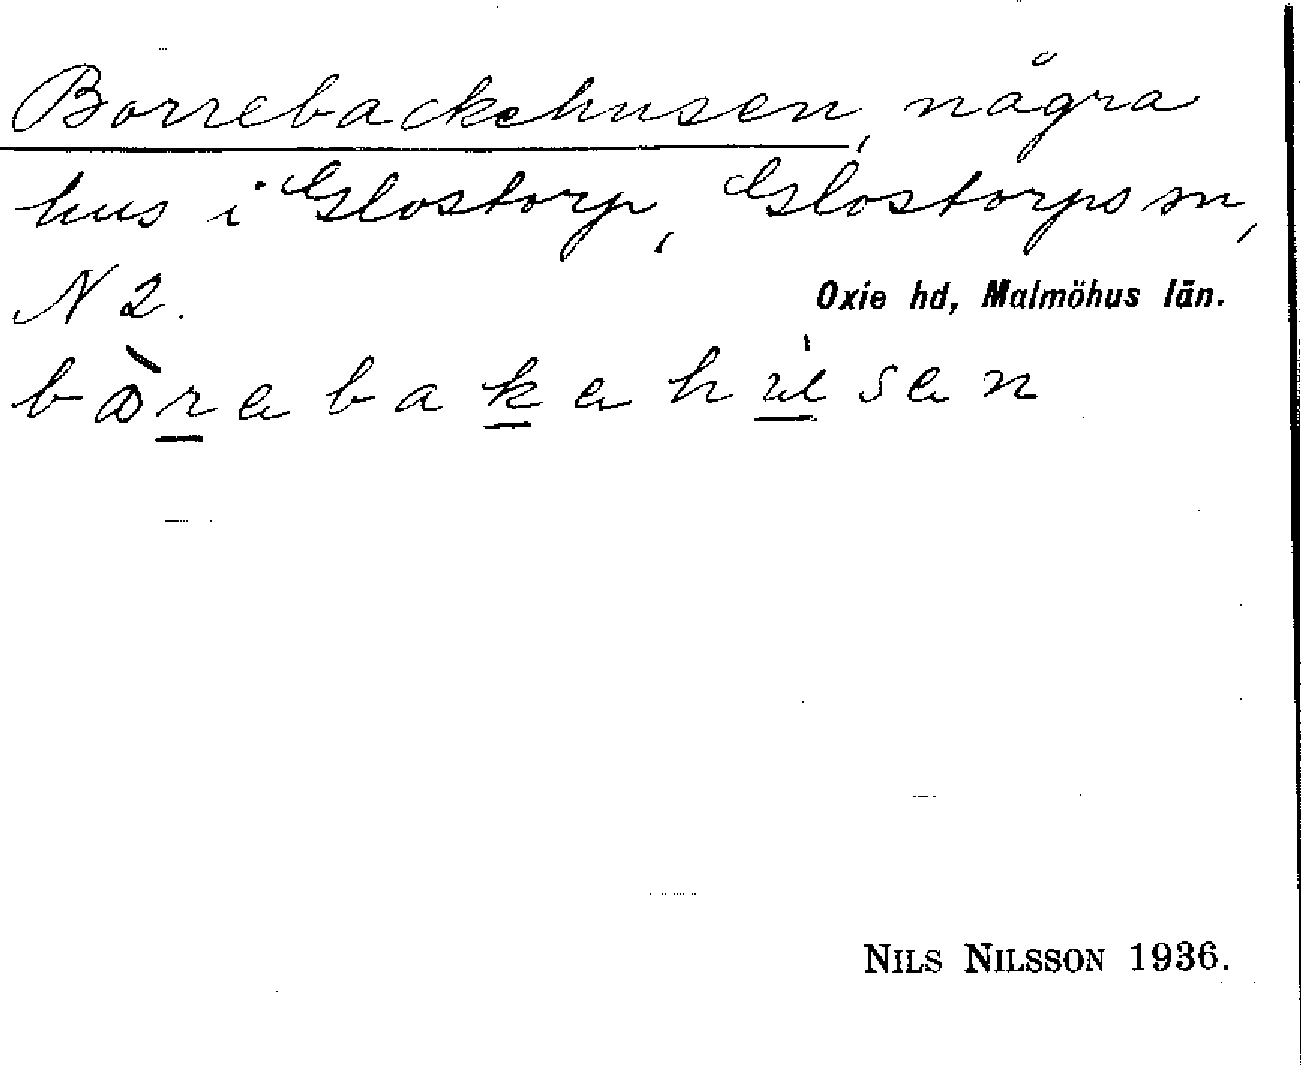 Borrebackehusen, några
hus i Glostorp, Glostorps sn,
N 2.
Oxie hd, Malmöhus län.
bòrebakehúsen
NILS NILSSON 1936.